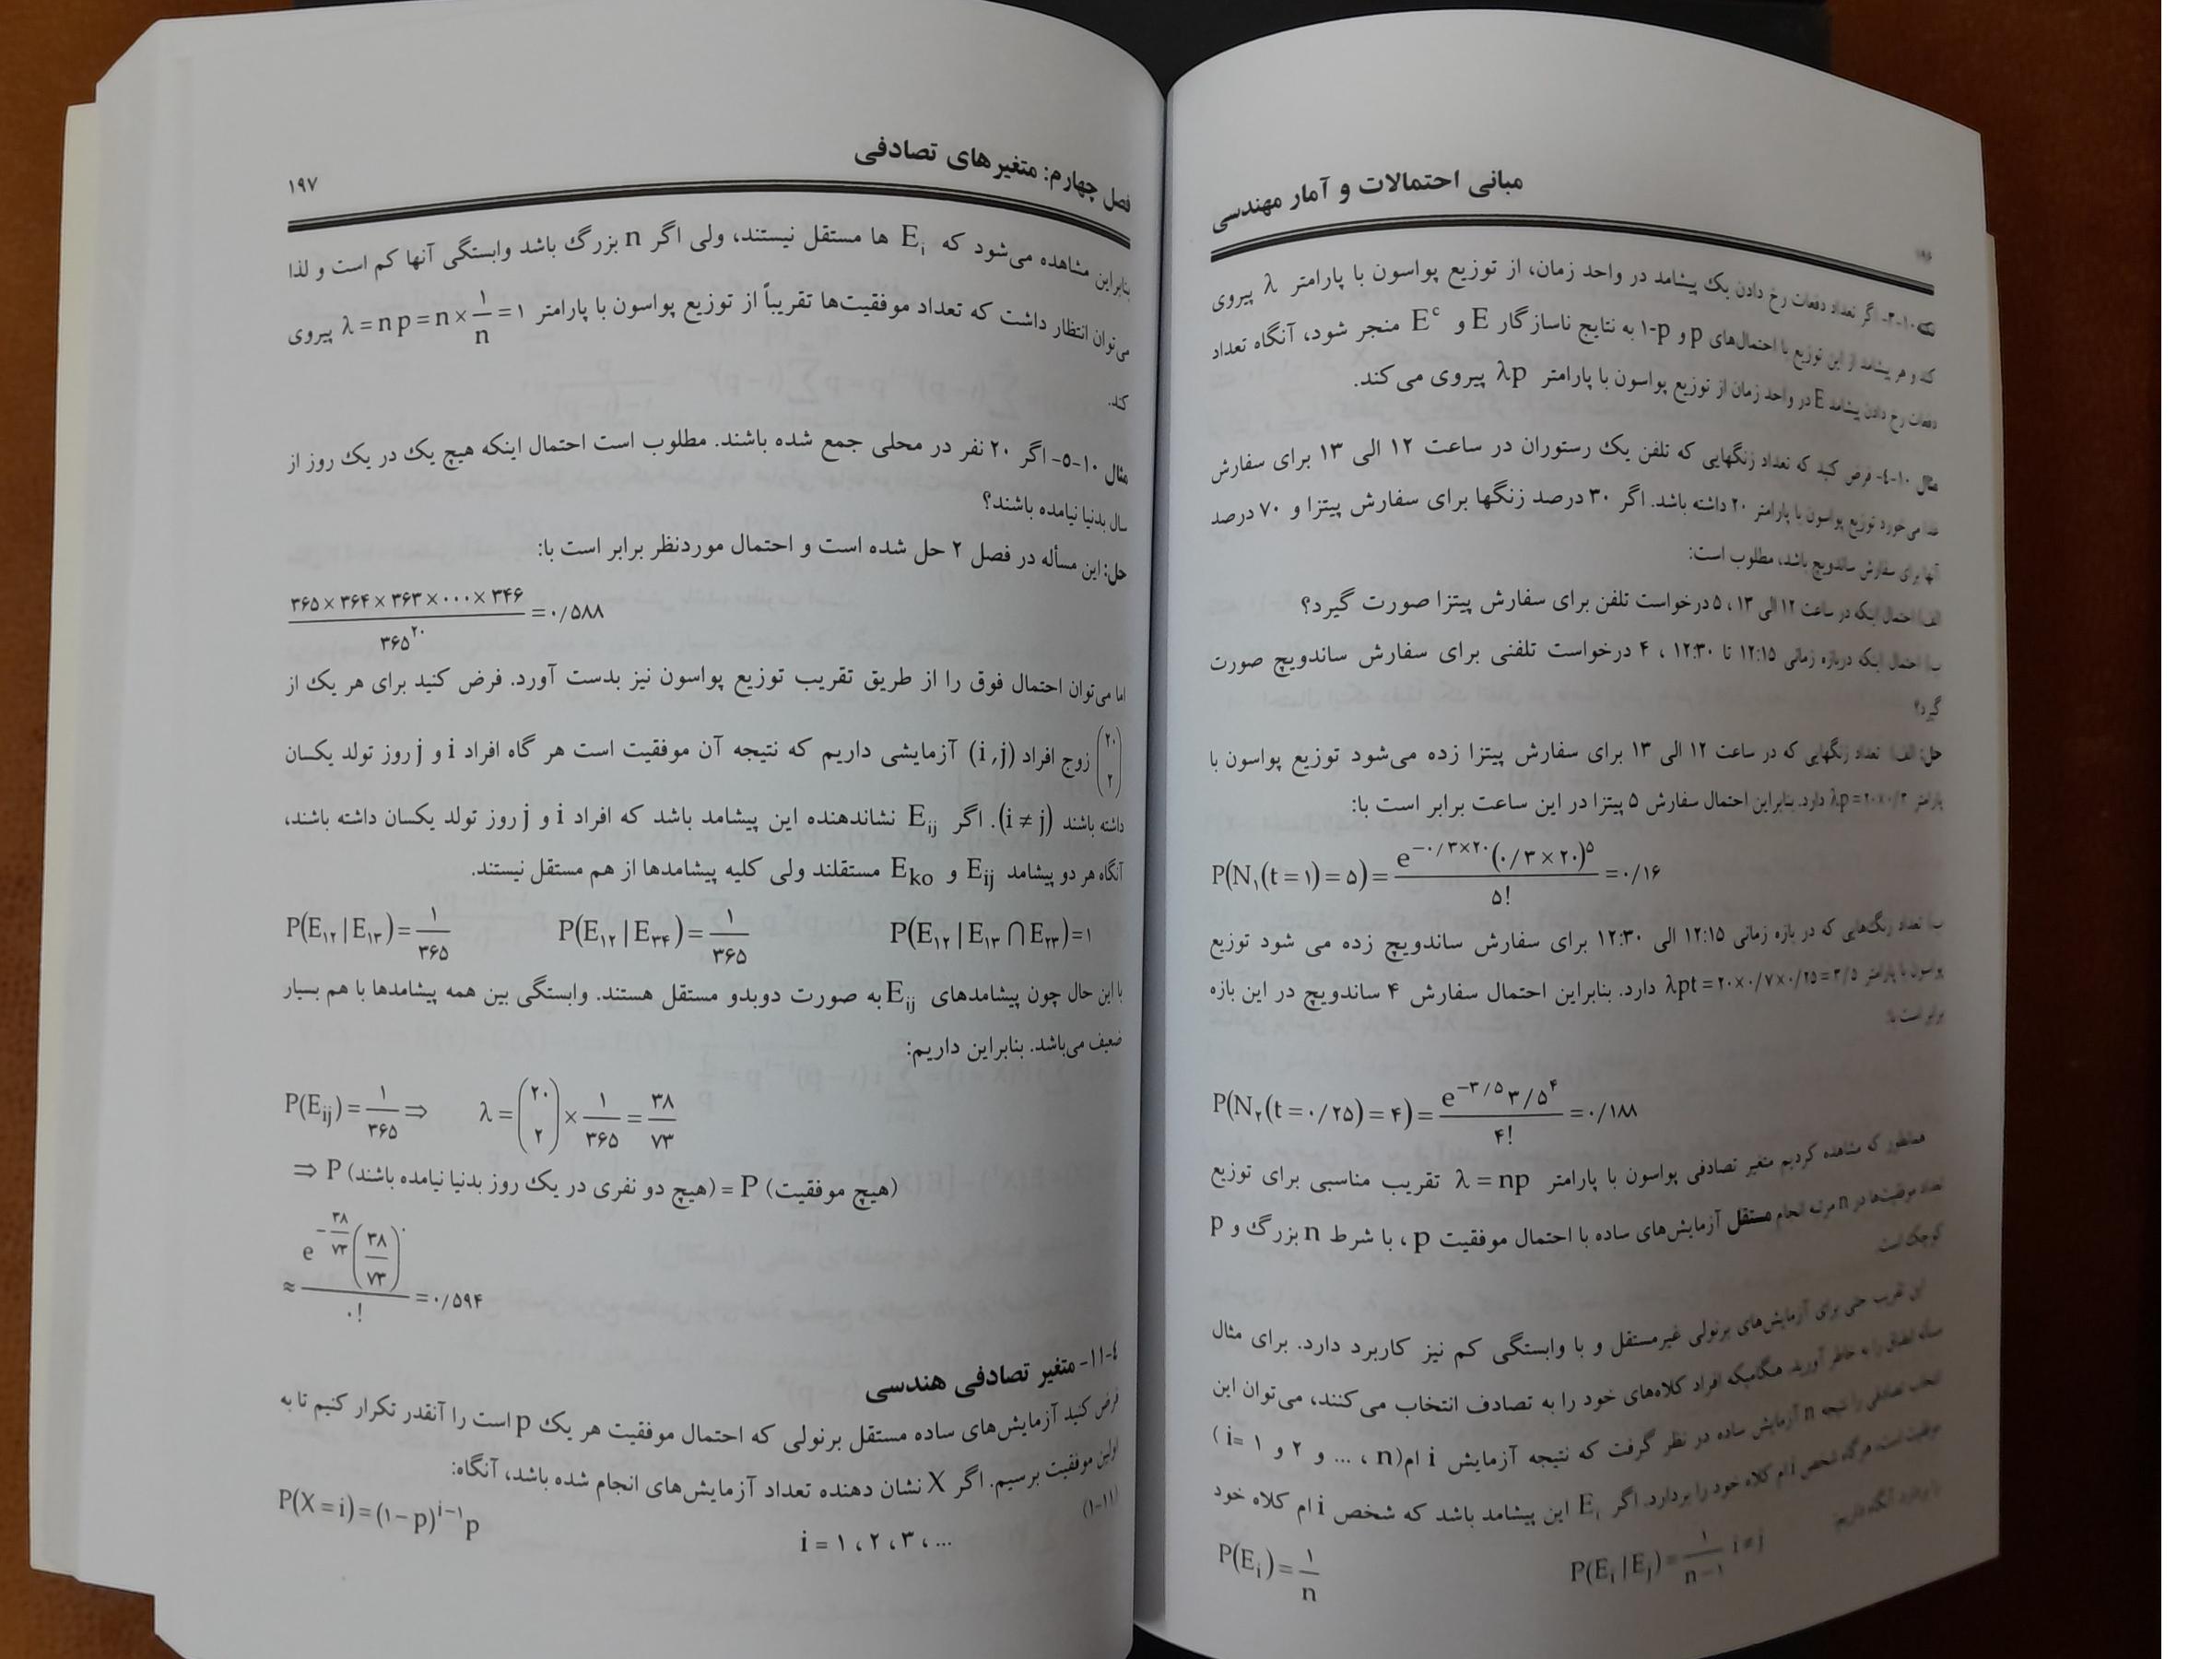 مبانی احتمالات و آمار مهندسی
۱۹۶
نکته ۱۰-۳- اگر تعداد دفعات رخ دادن یک پیشامد در واحد زمان، از توزیع پواسون با پارامتر λ پیروی
کند و هر پیشامد از این توزیع با احتمال‌های p و ۱-p به نتایج ناسازگار E و Eᶜ منجر شود، آنگاه تعداد
دفعات رخ دادن پیشامد E در واحد زمان از توزیع پواسون با پارامتر λp پیروی می‌کند.
مثال ۱۰-۴- فرض کنید که تعداد زنگهایی که تلفن یک رستوران در ساعت ۱۲ الی ۱۳ برای سفارش
غذا می‌خورد توزیع پواسون با پارامتر ۲۰ داشته باشد. اگر ۳۰ درصد زنگها برای سفارش پیتزا و ۷۰ درصد
آنها برای سفارش ساندویچ باشد، مطلوب است:
الف) احتمال اینکه در ساعت ۱۲ الی ۱۳، ۵ درخواست تلفن برای سفارش پیتزا صورت گیرد؟
ب) احتمال اینکه دربازه زمانی ۱۲:۱۵ تا ۱۲:۳۰ ، ۴ درخواست تلفنی برای سفارش ساندویچ صورت
گیرد؟
حل: الف) تعداد زنگهایی که در ساعت ۱۲ الی ۱۳ برای سفارش پیتزا زده می‌شود توزیع پواسون با
پارامتر λp=۲۰×۰/۳ دارد. بنابراین احتمال سفارش ۵ پیتزا در این ساعت برابر است با:
P(N₁(t=۱)=۵)= e^{-۰/۳×۲۰}(۰/۳×۲۰)^۵ / ۵! =۰/۱۶
ب) تعداد زنگ‌هایی که در بازه زمانی ۱۲:۱۵ الی ۱۲:۳۰ برای سفارش ساندویچ زده می شود توزیع
پواسون با پارامتر λpt=۲۰×۰/۷×۰/۲۵=۳/۵ دارد. بنابراین احتمال سفارش ۴ ساندویچ در این بازه
برابر است با:
P(N₂(t=۰/۲۵)=۴)= e^{-۳/۵}۳/۵^۴ / ۴! =۰/۱۸۸
همانطور که مشاهده کردیم متغیر تصادفی پواسون با پارامتر λ=np تقریب مناسبی برای توزیع
تعداد موفقیت‌ها در n مرتبه انجام مستقل آزمایش‌های ساده با احتمال موفقیت p، با شرط n بزرگ و p
کوچک است.
این تقریب حتی برای آزمایش‌های برنولی غیرمستقل و با وابستگی کم نیز کاربرد دارد. برای مثال
مسأله انطباق را به خاطر آورید. هنگامیکه افراد کلاه‌های خود را به تصادف انتخاب می‌کنند، می‌توان این
انتخاب تصادفی را نتیجه n آزمایش ساده در نظر گرفت که نتیجه آزمایش i ام(n ، ... و ۲ و ۱ =i )
موفقیت است، هرگاه شخص i ام کلاه خود را بردارد. اگر Eᵢ این پیشامد باشد که شخص i ام کلاه خود
را بردارد آنگاه داریم:
P(Eᵢ)=۱/n P(Eᵢ|Eⱼ)=۱/(n-۱) i≠j
فصل چهارم: متغیرهای تصادفی
۱۹۷
بنابراین مشاهده می‌شود که Eᵢ ها مستقل نیستند، ولی اگر n بزرگ باشد وابستگی آنها کم است و لذا
می‌توان انتظار داشت که تعداد موفقیت‌ها تقریباً از توزیع پواسون با پارامتر λ=np=n×۱/n=۱ پیروی
کند.
مثال ۱۰-۵- اگر ۲۰ نفر در محلی جمع شده باشند. مطلوب است احتمال اینکه هیچ یک در یک روز از
سال بدنیا نیامده باشند؟
حل: این مسأله در فصل ۲ حل شده است و احتمال موردنظر برابر است با:
۳۶۵×۳۶۴×۳۶۳×۰۰۰×۳۴۶ / ۳۶۵^۲۰ =۰/۵۸۸
اما می‌توان احتمال فوق را از طریق تقریب توزیع پواسون نیز بدست آورد. فرض کنید برای هر یک از
(۲۰ ۲) زوج افراد (i,j) آزمایشی داریم که نتیجه آن موفقیت است هر گاه افراد i و j روز تولد یکسان
داشته باشند (i≠j). اگر Eᵢⱼ نشاندهنده این پیشامد باشد که افراد i و j روز تولد یکسان داشته باشند،
آنگاه هر دو پیشامد Eᵢⱼ و Eₖₒ مستقلند ولی کلیه پیشامدها از هم مستقل نیستند.
P(E₁₂|E₁₃)=۱/۳۶۵ P(E₁₂|E₃₄)=۱/۳۶۵ P(E₁₂|E₁₃∩E₂₃)=۱
با این حال چون پیشامدهای Eᵢⱼ به صورت دوبدو مستقل هستند. وابستگی بین همه پیشامدها با هم بسیار
ضعیف می‌باشد. بنابراین داریم:
P(Eᵢⱼ)=۱/۳۶۵ ⇒ λ=(۲۰ ۲)×۱/۳۶۵=۳۸/۷۳
⇒ P(هیچ دو نفری در یک روز بدنیا نیامده باشند) = P (هیچ موفقیت)
≈ e^{-۳۸/۷۳}(۳۸/۷۳)^۰ / ۰! =۰/۵۹۴
۴-۱۱- متغیر تصادفی هندسی
فرض کنید آزمایش‌های ساده مستقل برنولی که احتمال موفقیت هر یک p است را آنقدر تکرار کنیم تا به
اولین موفقیت برسیم. اگر X نشان دهنده تعداد آزمایش‌های انجام شده باشد، آنگاه:
P(X=i)=(۱-p)^{i-۱}p i=۱،۲،۳،... (۱-۱۱)